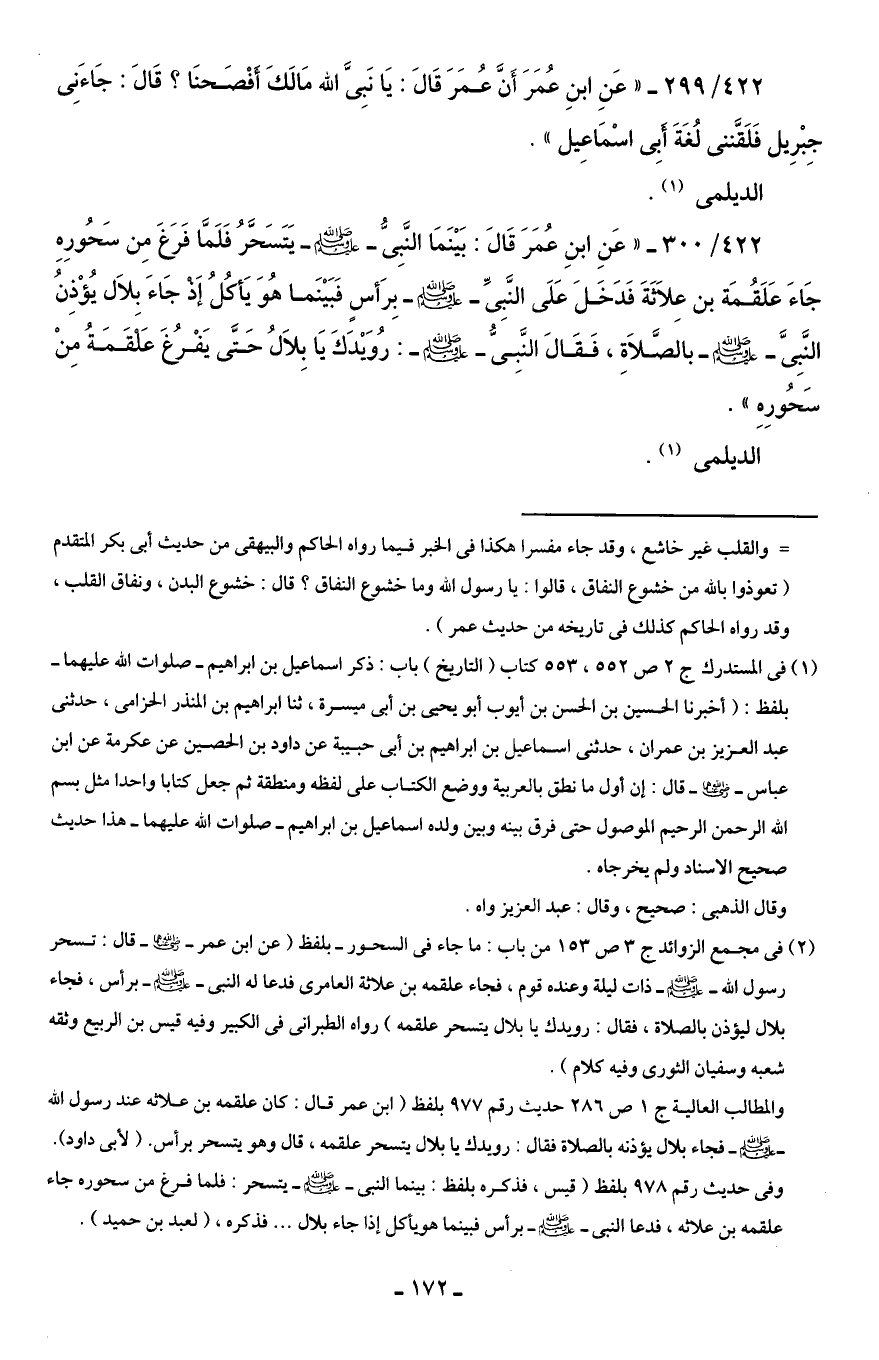 ٤٢٢/ ٢٩٩ ـ « عَنِ ابنِ عُمَرَ أَنَّ عُـمَرَ قَالَ : يَا نَبِىَّ الله مَالَكَ أَفْصَـحنَا ؟ قَالَ : جَاءَنِى
جِبْرِيل فَلَقَّننى لُغَةَ أَبِى اسْمَاعِيل » .
الديلمى (١) .
٤٢٢/ ٣٠٠ ـ « عَنِ ابنِ عُمَرَ قَالَ : بَيْنَمَا النَّبِىُّ ـ ﷺ ـ يَتَسَحَّرُ فَلَمَّا فَرَغَ مِن سَحُورِهِ
جَاءَ عَلَقُـمَة بن عِلاَثَةَ فَدَخَـلَ عَلَى النَّبِىِّ ـ ﷺ ـ بِرَأسٍ فَبَيْنَمـا هُوَ يَأكُلُ إذْ جَاءَ بِلاَل يُؤْذِنُ
النَّبِىَّ ـ ﷺ ـ بالصَّـلاَةِ ، فَـقَـالَ النَّبِـىُّ ـ ﷺ ـ : رُوَيْدَكَ يَا بِلاَلُ حَـتَّى يَفْـرُغَ عَلْقَـمَـةُ مِنْ
سَحُورِهِ » .
الديلمى (١) .
= والقلب غير خاشع ، وقد جاء مفسرا هكذا فى الخبر فـيما رواه الحاكم والبيهقى من حديث أبى بكر المتقدم
( تعوذوا بالله من خشوع النفاق ، قالوا : يا رسول الله وما خشوع النفاق ؟ قال : خشوع البدن ، ونفاق القلب ،
وقد رواه الحاكم كذلك فى تاريخه من حديث عمر ) .
(١) فى المستدرك ج ٢ ص ٥٥٢ ، ٥٥٣ كتاب ( التاريخ ) باب : ذكر اسماعيل بن ابراهيم ـ صلوات الله عليهما ـ
بلفظ : ( أخبرنا الحـسين بن الحسن بن أيوب أبو يحيى بن أبى ميسرة ، ثنا ابراهيم بن المنذر الحزامى ، حدثنى
عبد العـزيز بن عمران ، حدثنى اسـماعيل بن ابراهيم بن أبى حبـيبة عن داود بن الحصين عن عكرمة عن ابن
عباس ـ رضي الله عنهما ـ قال : إن أول ما نطق بالعربية ووضع الكتـاب على لفظه ومنطقة ثم جعل كتابا واحدا مثل بسم
الله الرحمن الرحيم الموصول حتى فرق بينه وبين ولده اسماعيل بن ابراهيم ـ صلوات الله عليهما ـ هذا حديث
صحيح الاسناد ولم يخرجاه .
وقال الذهبى : صحيح ، وقال : عبد العزيز واه .
(٢) فى مجمع الزوائد ج ٣ ص ١٥٣ من باب : ما جاء فى السحور ـ بلفظ ( عن ابن عمر ـ رضي الله عنهما ـ قال : تـسحر
رسول الله ـ ﷺ ـ ذات ليلة وعنده قوم ، فجاء علقمه بن علاثة العامرى فدعا له النبى ـ ﷺ ـ برأس ، فجاء
بلال ليؤذن بالصلاة ، فقال : رويدك يا بلال يتسحر علقمه ) رواه الطبرانى فى الكبير وفيه قيس بن الربيع وثقه
شعبه وسفيان الثورى وفيه كلام ) .
والمطالب العاليـة ج ١ ص ٢٨٦ حديث رقم ٩٧٧ بلفظ ( ابن عمر قـال : كان علقمه بن عـلاثه عند رسول الله
ـ ﷺ ـ فجاء بلال يؤذنه بالصلاة فقال : رويدك يا بلال يتسحر علقمه ، قال وهو يتسحر برأس. ( لأبى داود).
وفى حديث رقم ٩٧٨ بلفظ ( قيس ، فذكـره بلفظ : بينما النبى ـ ﷺ ـ يتسحر : فلما فـرغ من سحوره جاء
علقمه بن علاثه ، فدعا النبى ـ ﷺ ـ برأس فبينما هويأكل إذا جاء بلال ... فذكره ، ( لعبد بن حميد ) .
ـ ١٧٢ ـ